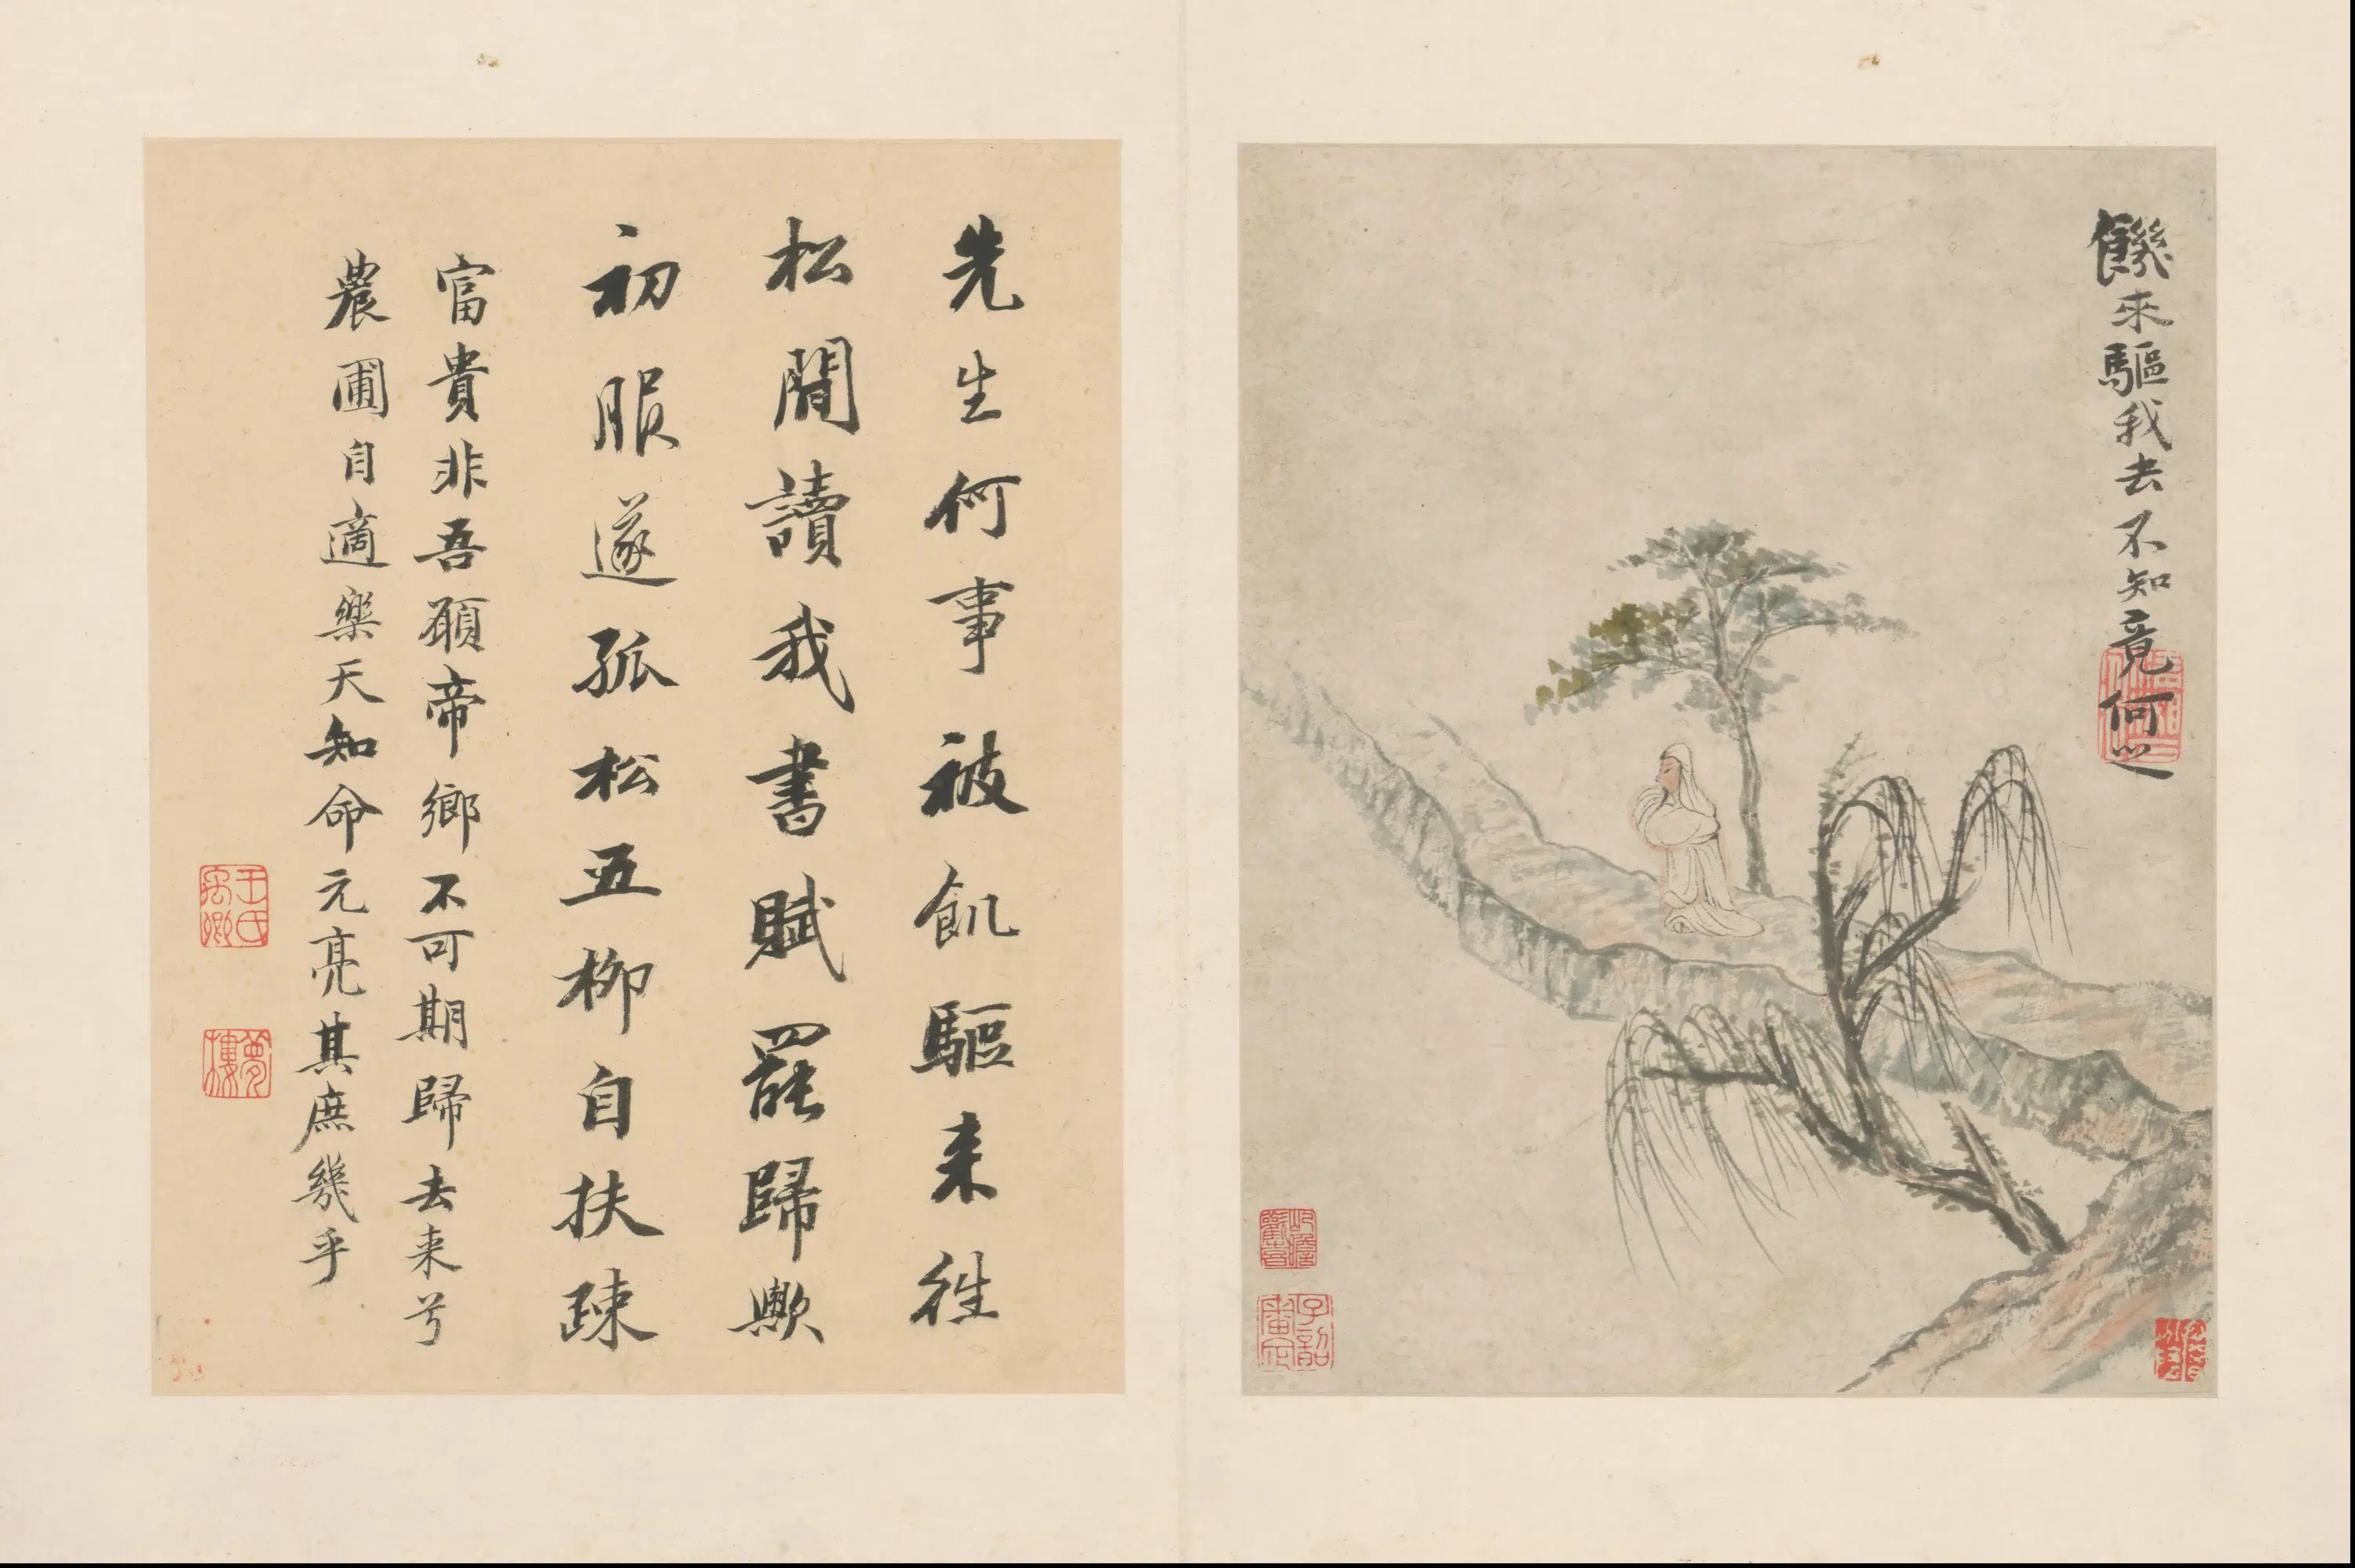 饑來驅我去不知竟何之
先生何事被飢驅来徃
松間讀我書賦罷歸歟
初服遂孤松五柳自扶疎
富貴非吾願帝鄉不可期歸去来兮
農圃自適樂天知命元亮其庶幾乎
王氏禹卿
夢樓